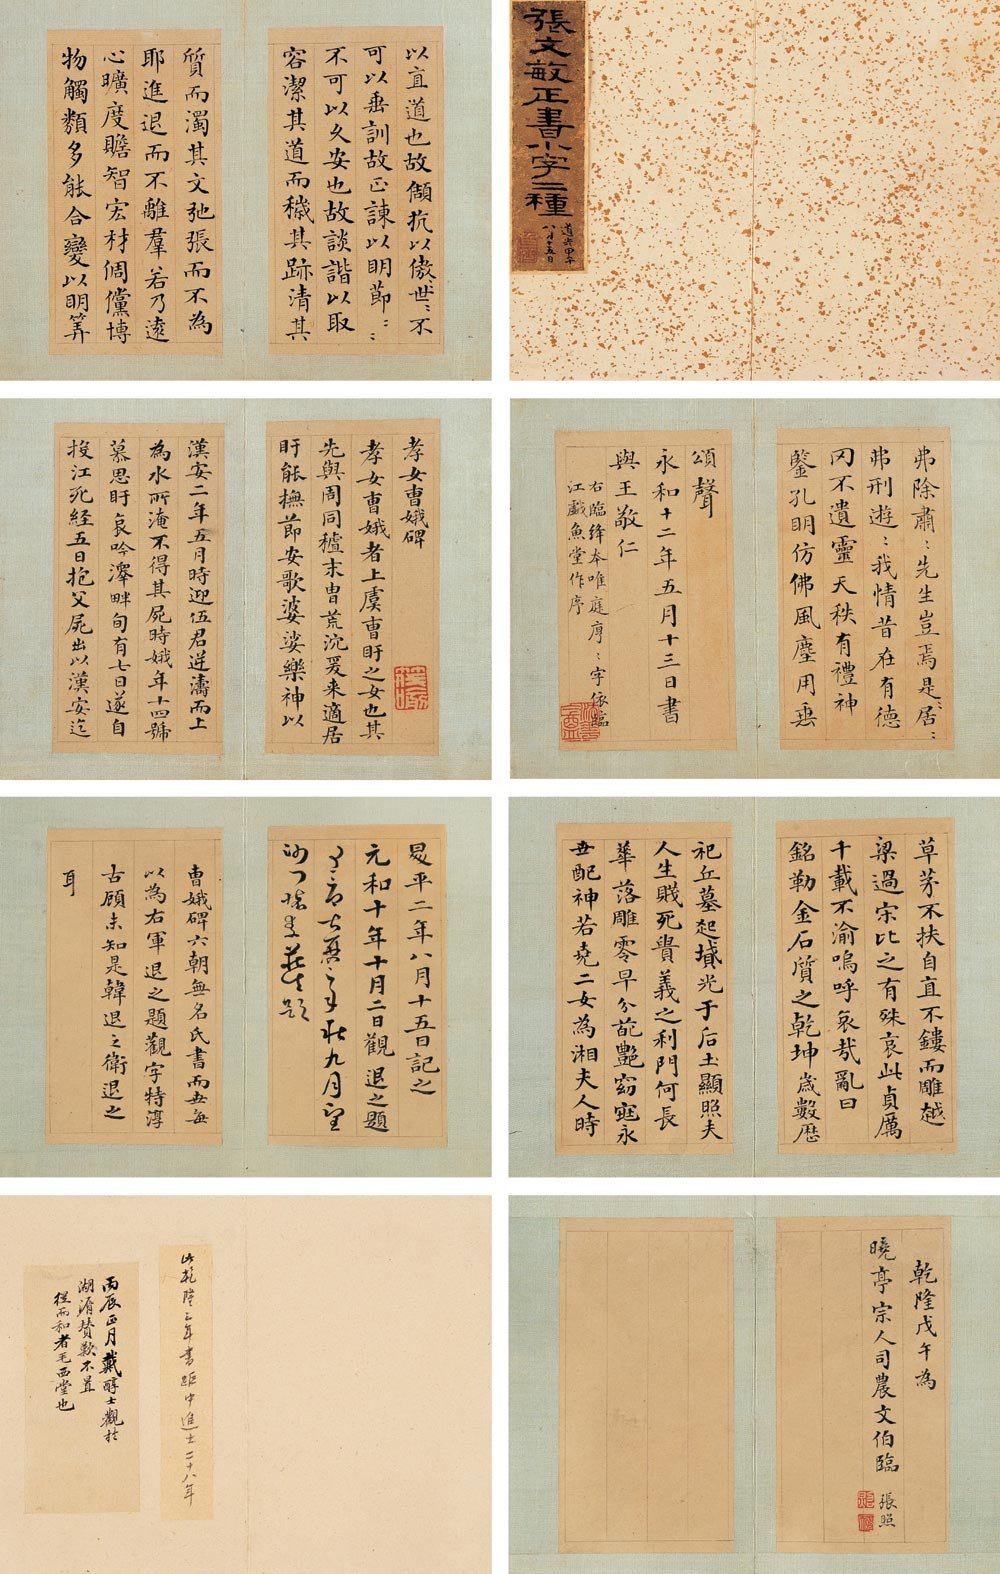 張文敏正書小字二種
道光甲午
八月十五日
以直道也故頡抗以傲世〻不
可以垂訓故正諫以明節〻〻
不可以久安也故談諧以取
容潔其道而穢其跡清其
質而濁其文弛張而不為
耶進退而不離羣若乃遠
心曠度贍智宏材倜儻博
物觸類多能合變以明筭
弗除肅〻先生豈焉是居〻〻
弗刑遊〻我情昔在有德
罔不遺靈天秩有禮神
鑒孔明仿佛風塵用垂
頌聲
永和十二年五月十三日書
與王敬仁
右臨絳本唯庭序〻字依臨
江戲魚堂作序
孝女曹娥碑
孝女曹娥者上虞曹盱之女也其
先與周同穜末胄荒沉爰来適居
盱能撫節安歌婆娑樂神以
漢安二年五月時迎伍君逆濤而上
為水所淹不得其屍時娥年十四號
慕思盱哀吟澤畔旬有七日遂自
投江死経五日抱父屍出以漢安迄
草茅不扶自直不鏤而雕越
梁過宋比之有殊哀此貞厲
千載不渝嗚呼哀哉亂曰
銘勒金石質之乾坤歲數歷
祀丘墓起墳光于后土顯照夫
人生賤死貴義之利門何長
華落雕零早分葩艷窈窕永
世配神若堯二女為湘夫人時
昇平二年八月十五日記之
元和十年十月二日觀退之題
年秋九月望
題
曹娥碑六朝無名氏書而世每
以為右軍退之題觀字特淳
古顧未知是韓退之衛退之
耳
乾隆戊午為
曉亭宗人司農文伯臨
張照
此乾隆三年書距中進士二十八年
丙辰正月戴醇士觀於
湖漘賛歎不置
從而和者毛西堂也